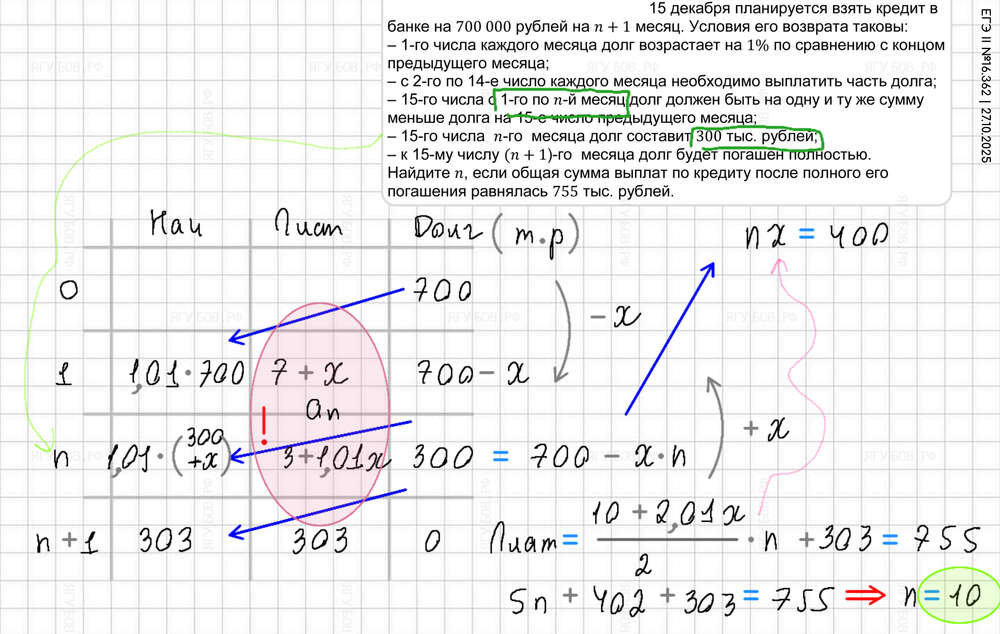 15 декабря планируется взять кредит в
банке на 700 000 рублей на n + 1 месяц. Условия его возврата таковы:
– 1-го числа каждого месяца долг возрастает на 1% по сравнению с концом
предыдущего месяца;
– с 2-го по 14-е число каждого месяца необходимо выплатить часть долга;
– 15-го числа с 1-го по n-й месяц долг должен быть на одну и ту же сумму
меньше долга на 15-е число предыдущего месяца;
– 15-го числа n-го месяца долг составит 300 тыс. рублей;
– к 15-му числу (n + 1)-го месяца долг будет погашен полностью.
Найдите n, если общая сумма выплат по кредиту после полного его
погашения равнялась 755 тыс. рублей.
ЕГЭ II №16.362 | 27.10.2025
Нач Плат Долг (т.р)
nx = 400
0 700
– x
1 1,01·700 7 + x 700 – x
an
!
n 1,01·(300 + x) 3+1,01x 300 = 700 – x·n
+ x
n + 1 303 303 0
Плат = (10 + 2,01x)/2 · n + 303 = 755
5n + 402 + 303 = 755 ⇒ n = 10
ЯГУБОВ.РФ